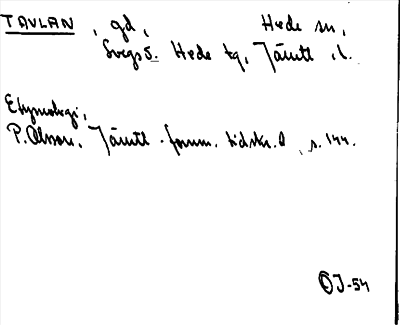 TAVLAN, gd, Hede sn,
Svegs S. Hede tg, Jämtl. l.
Etymologi,
P. Olsson, Jämtl. fornm. tidskr. 1, s. 144.
OJ-54